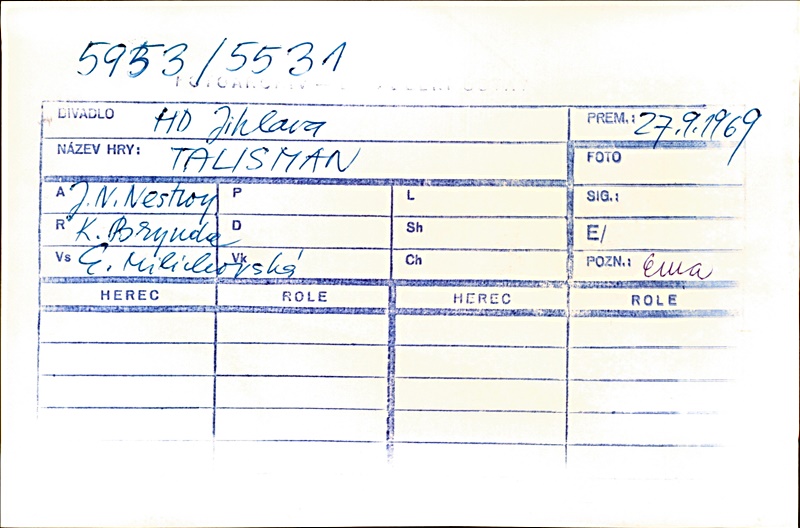 5953/5531
DIVADLO HD Jihlava PREM.: 27.9.1969
NÁZEV HRY: TALISMAN FOTO
A J.N. Nestroy P L SIG.:
R K. Brynda D Sh E/
Vs E. Milichovská Vk Ch POZN.: Ema
HEREC ROLE HEREC ROLE